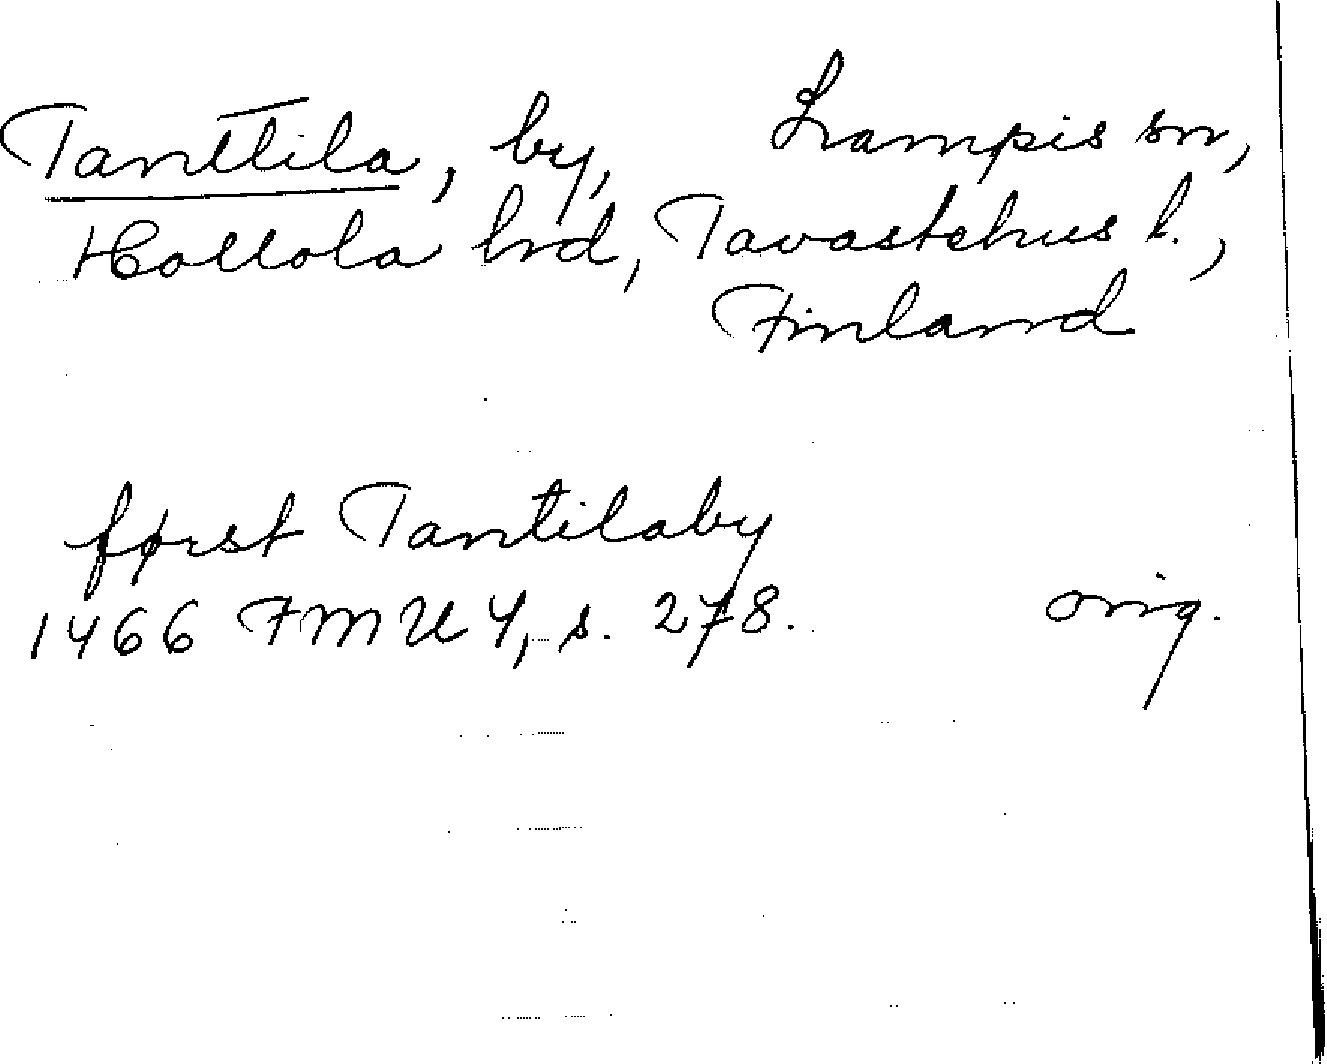 Tanttila, by, Lampis sn,
Hollola hrd, Tavastehus l.,
Finland
først Tantilaby
1466 FMU 4, s. 278. orig.